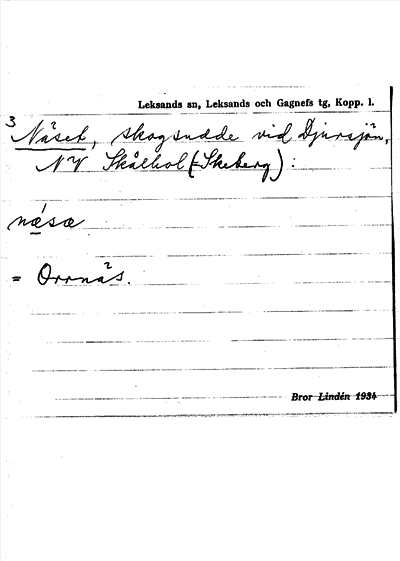 Leksands sn, Leksands och Gagnefs tg, Kopp. l.
3
Näset, skogsudde vid Djursjön,
NV Skålhol (= Skeberg):
næsæ
= Orrnäs.
Bror Lindén 1934